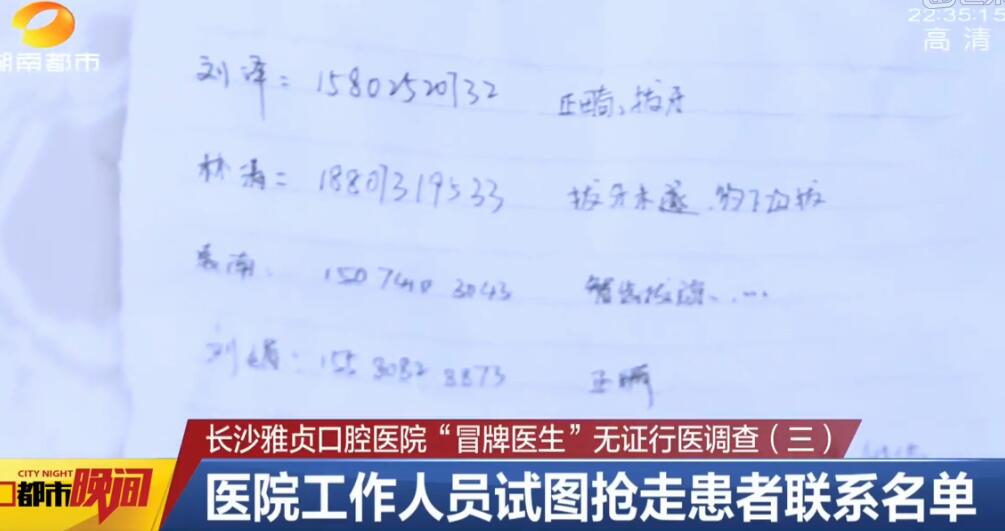 22:35:15
高清
湖南都市
刘泽：15802520732 正畸、拔牙
林涛：18807319533 拔牙未遂、约下次拔
南：150 7411 3043 智齿拔除……
刘娟：155 8082 8873 正畸
长沙雅贞口腔医院“冒牌医生”无证行医调查（三）
CITY NIGHT
都市晚间
医院工作人员试图抢走患者联系名单